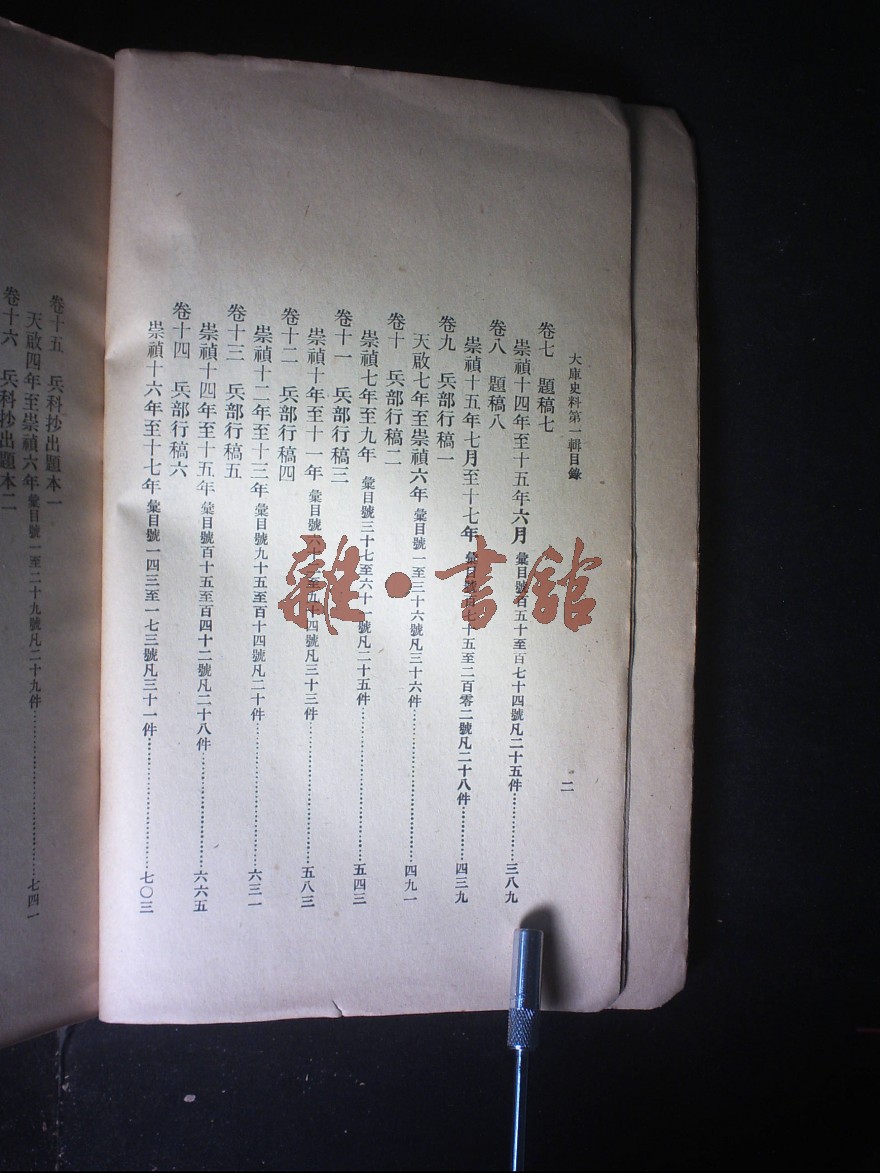 大庫史料第一輯目錄
二
卷七　題稿七
崇禎十四年至十五年六月 彙目號百五十至百七十四號凡二十五件……………三八九
卷八　題稿八
崇禎十五年七月至十七年 彙目號百七十五至二百零二號凡二十八件……………四三九
卷九　兵部行稿一
天啟七年至崇禎六年 彙目號一至三十六號凡三十六件……………四九一
卷十　兵部行稿二
崇禎七年至九年 彙目號三十七至六十一號凡二十五件……………五四三
卷十一　兵部行稿三
崇禎十年至十一年 彙目號六十二至九十四號凡三十三件……………五八三
卷十二　兵部行稿四
崇禎十二年至十三年 彙目號九十五至百十四號凡二十件……………六三一
卷十三　兵部行稿五
崇禎十四年至十五年 彙目號百十五至百四十二號凡二十八件……………六六五
卷十四　兵部行稿六
崇禎十六年至十七年 彙目號一四三至一七三號凡三十一件……………七〇三
卷十五　兵科抄出題本一
天啟四年至崇禎六年 彙目號一至二十九號凡二十九件……………七四一
卷十六　兵科抄出題本二
雜·書館